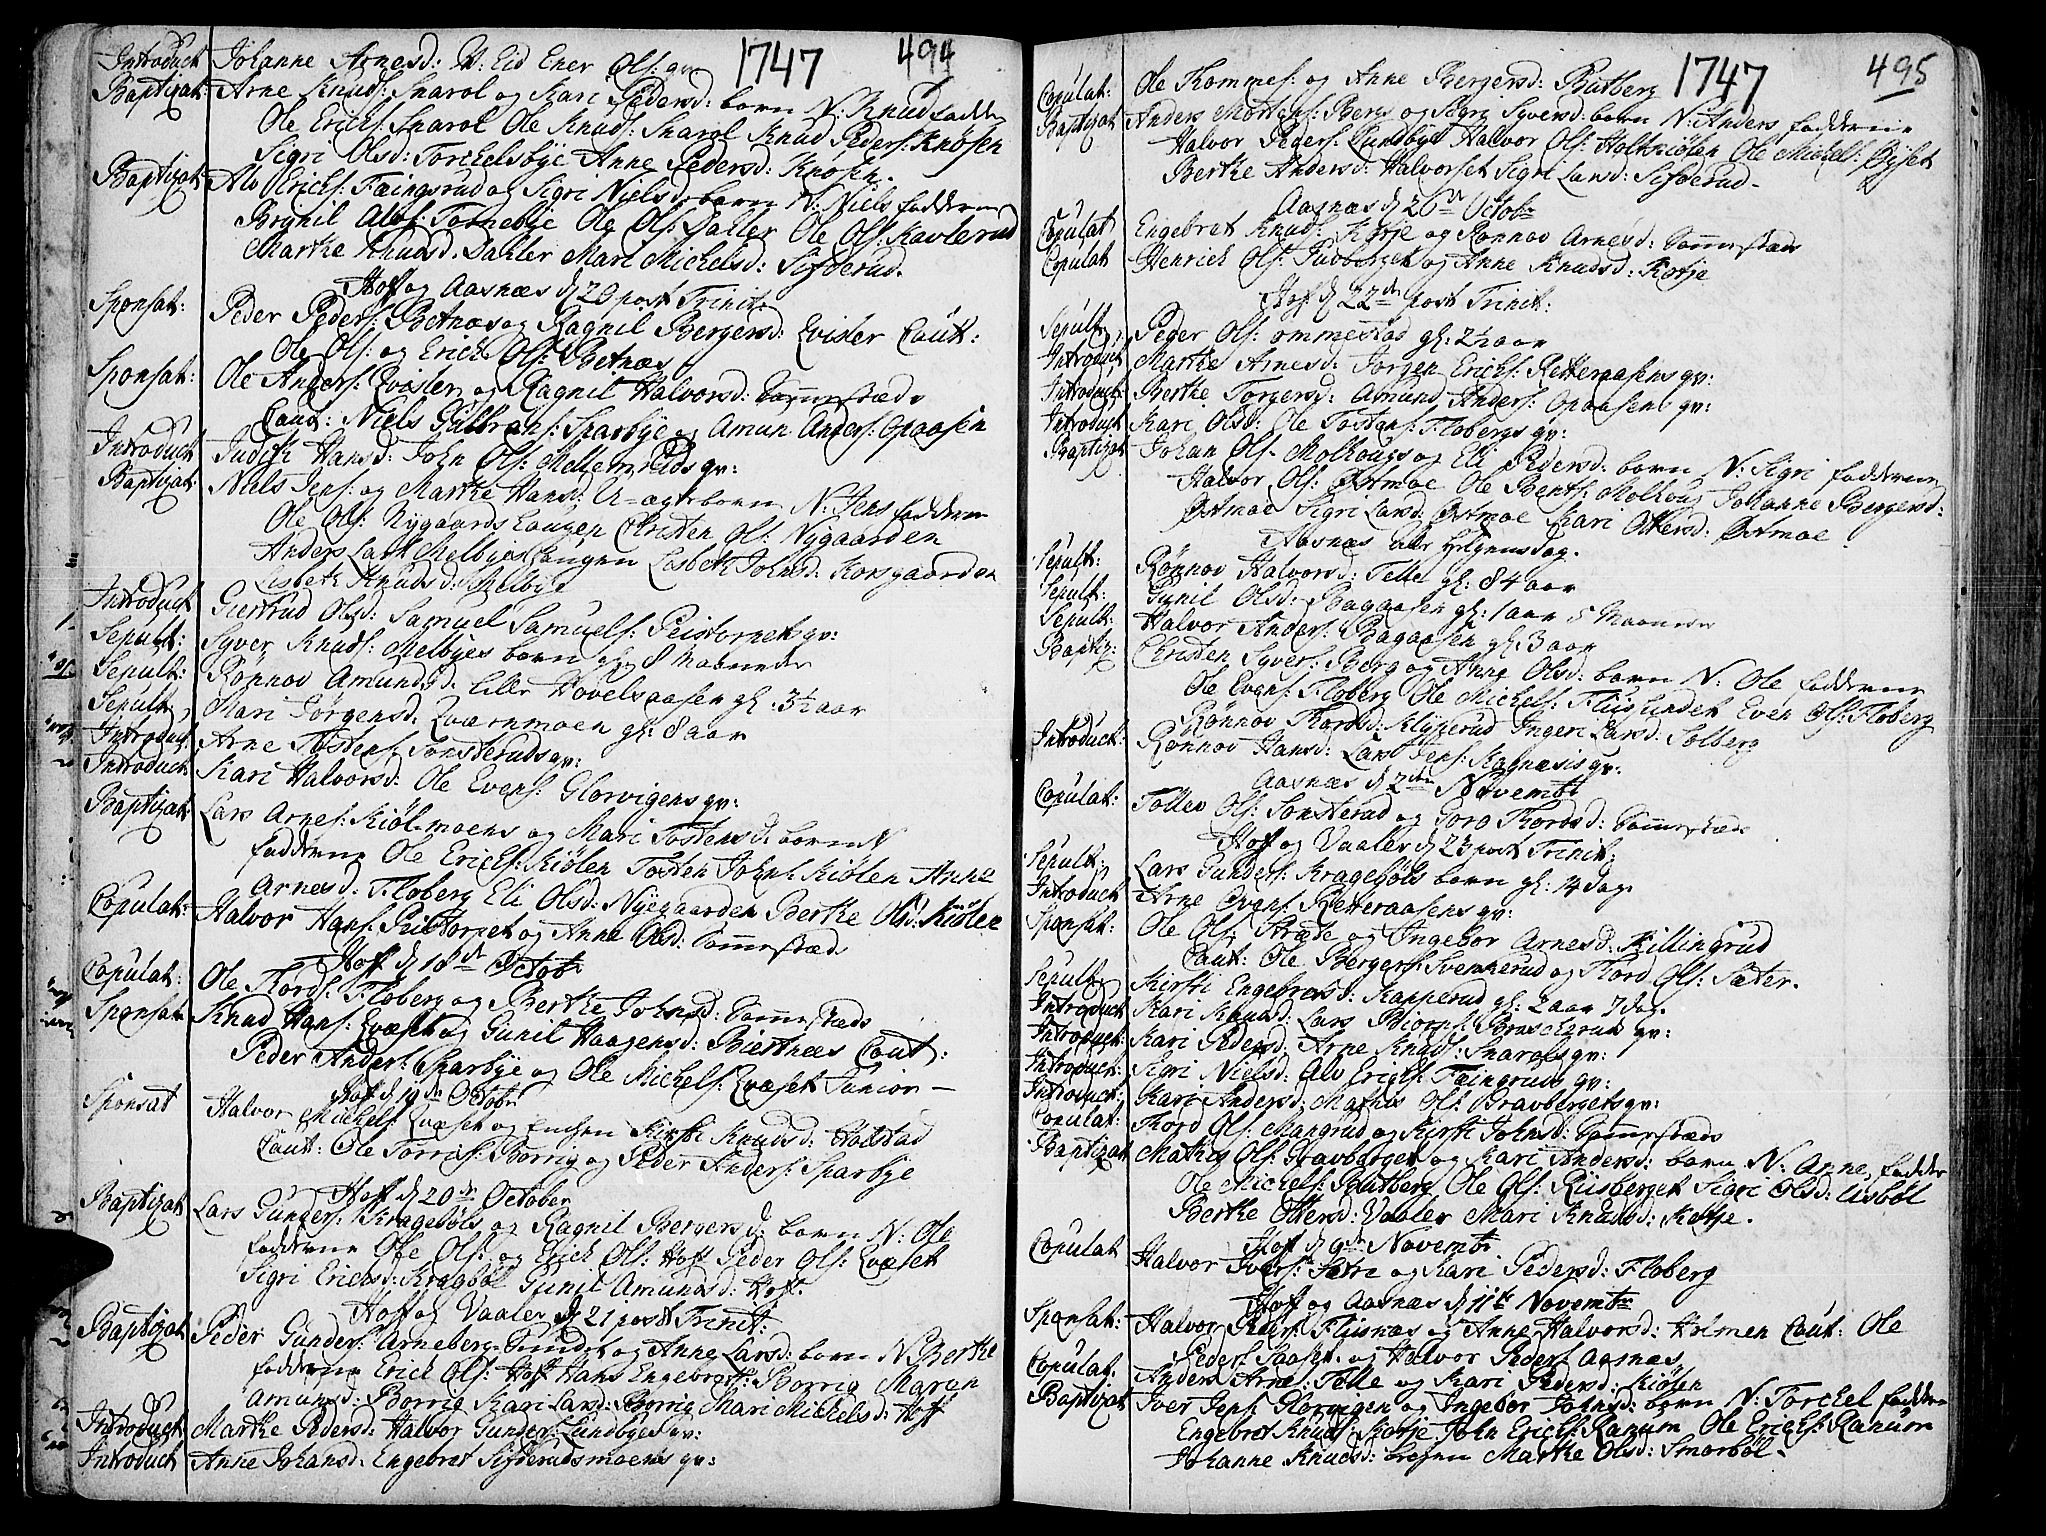 1747 494
Introduct Johanne Arnesd: N: Eid Ener Ols: qv:
Baptizat: Arne Knuds: Snarol og Kari Peders d: barn N: Knud faddere
Ole Erichs: Snarol Ole Knuds: Snarol Knud Peders: Knøsen
Sigri Olsd: Torchelsbye Anne Pedersd: Knøsen.
Baptizat: Alv Erichs: Fæingsrud og Sigri Nielsd: barn N: Niels faddere
Borghil Alsd: Tornebye Ole Ols: Dahler Ole Ols: Kavlerud
Marthe Knudsd. Dahler Mari Michelsd: Sifderud.
Hof og Aasnæs d 20 post Trinit:
Sponsat: Peder Peders: Betnæs og Ragnil Bergersd: Qvisler Caut:
Ole Ols: og Erich Ols: Betnæs
Sponsat: Ole Anders: Qvisler og Ragnil Halvorsd: Sammestæds
Caut: Niels Gulbrans: Sparbye og Amun Anders: Opaasen
Introduct Judith Hansd: John Ols: Mellem Eids qv:
Baptizat: Niels Jens: og Marthe Hansd: U-ægte barn N: Jens faddere
Ole Ols: Nygaards Laugen Christen Ols: Nygaarden
Anders Lars: Melbyes Laugen Lisbeth Johnsd: Korsgaarden
Lisbeth Knudsd: Melbye
Introduct Giertrud Olsd: Samuel Samuels: Peistorpets qv:
Sepult: Syver Knuds: Melbyes barn gl: 8 Maaneder
Sepult: Rønnov Amundsd: Lille Hovelsaasen gl: 3½ aar
Sepult: Mari Jørgensd: Qværnmoen gl: 8 aar
Introduct: Arne Tostens: Sønsteruds qv:
Introduct: Kari Halvorsd: Ole Evens: Glorvigens qv:
Baptizat: Lars Arnes: Kiølmoens og Mari Tostensd: barn N
faddere Ole Erichs: Kiølen Tosten Johns: Kiølen Anne
Arnesd: Floberg Eli Olsd: Nyegaarden Berthe Olsd: Kiølen
Copulat: Halvor Hans: Peistorpet og Anne Olsd: Sammestæds
Hoff d 18de Octobr
Copulat: Ole Thords: Floberg og Berthe Johnsd: Sammestæds
Sponsat Knud Hans: Qvæset og Gunil Haagensd: Biertnæs Caut:
Peder Anders: Sparbye og Ole Michels: Qvæset Junior
Hoff d 19de Octobr
Sponsat Halvor Michels: Qvæset og Enchen Kirsti Knudsd: Halstad
Caut: Ole Torris: Borrig og Peder Anders: Sparbye
Hoff d 20de October
Baptizat Lars Gunders: Kragebøls og Ragnil Bergersd: barn N: Ole
faddere Ole Ols: og Erich Ols: Hoff Peder Ols: Qvæset
Sigri Erichsd: Kragbøl Gunil Amundsd: Hoff.
Hoff og Vaaler d 21 post Trinit:
Baptizat Peder Gunders: Arneberg Sundet og Anne Larsd: barn N: Berthe
faddere Erich Ols: Hoff Hans Engebrets: Borrig Maren
Amundsd: Borrig Kari Larsd: Borrig Mari Michelsd: Hoff
Introduct Marthe Pedersd: Halvor Gunders: Lundbyes qv:
Introduct Anne Johansd: Engebret Sifderudsmoens qv:
1747 495
Copulat: Ole Thommes: og Anne Bergersd: Butberg
Baptizat Anders Mortens: Berg og Sigri Syversd: barn N: Anders faddere
Halvor Peders: Lundbye Halvor Ols: Holtkiølen Ole Michels: Øyset
Berthe Andersd: Halvorset Sigri Larsd: Sifderud.
Aasnæs d 26de Octobr
Copulat Engebret Knuds: Kotje og Rønnov Arnesd: Sammestæds
Copulat Henrich Ols: Gravberget og Anne Knudsd: Kotje
Hof d 22de post Trinit:
Sepult: Peder Ols: Ommestad gl: 2½ aar
Introduct Marthe Arnesd: Jørgen Erichs: Retteraasens qv:
Introduct: Berthe Torgersd: Amund Anders: Opaasens qv:
Introduct Kari Olsd: Ole Tostens: Flobergs qv:
Baptizat Johan Ols: Molhougs og Eli Pedersd: barn N: Sigri faddere
Halvor Ols: Østmoe Ole Bents: Molhoug Johanne Bergersd:
Østmoe Sigri Larsd: Østmoe Kari Ottersd: Østmoe
Aasnæs alle Helgensdag.
Sepult: Rønnov Halvorsd: Telle gl: 84 aar
Sepult: Gunil Olsd: Bagaasen gl: 1 aar 5 Maaneder
Sepult: Halvor Anders: Bagaasen gl: 3 aar
Baptiz: Christen Syvers: Berg og Anne Olsd: barn N: Ole faddere
Ole Evens: Floberg Ole Michels: Fliisundet Even Ols: Floberg
Rønnov Thordsd: Klyperud Ingeri Larsd: Solberg
Introduct: Rønnov Hansd: Lars Jens: Kagnæsis qv:
Aasnæs d 2den Novembr
Copulat: Tollev Ols: Sønsterud og Goro Thordsd: Sammestæds
Hoff og Vaaler d 23 post Trinit:
Sepult: Lars Gunders: Kragebøls barn gl: 14 dag
Introduct: Arne Evens: Retteraasens qv:
Sponsat: Ole Ols: Stræte og Ingebor Arnesd: Killingrud
Caut: Ole Bergers: Svenkerud og Thord Ols: Sæter.
Sepult Kirsti Engebretsd: Kapperud gl: 2 aar 7 dag.
Introduct Kari Knudsd: Lars Biørns: Braschrud qv:
Introduct: Kari Pedersd: Arne Knuds: Snarols qv:
Introduct: Sigri Nielsd: Alv Erichs: Fæingruds qv:
Introduct: Kari Andersd: Mathis Ols: Gravbergets qv:
Copulat: Thord Ols: Mangrud og Kirsti Johnsd: Sammestæds
Baptizat Mathis Ols: Gravberget og Kari Andersd: barn N: Arne, fadder
Ole Michels: Butberg Ole Ols: Riisberget Sigri Olsd: Lisbøl
Berthe Ottersd: Vaaler Mari Knudsd: Kotje.
Hoff d 9de Novembr
Copulat Halvor Ivers: Sætre og Kari Pedersd: Floberg
Hoff og Aasnæs d 11te Novembr
Sponsat: Halvor Peders: Fliisnæs og Anne Halvorsd: Holmen Caut: Ole
Peders: Saaset og Halvor Peders: Aasnæs
Copulat: Anders Arnes: Telle og Kari Pedersd: Kiølen
Baptizat Iver Jens: Glorvigen og Ingebor Johnsd: barn N: Torchel fadder
Engebret Knuds: Kotje John Erichs: Ranum Ole Erichs: Ranum
Johanne Knudsd: Marthe Olsd: Smørbøl